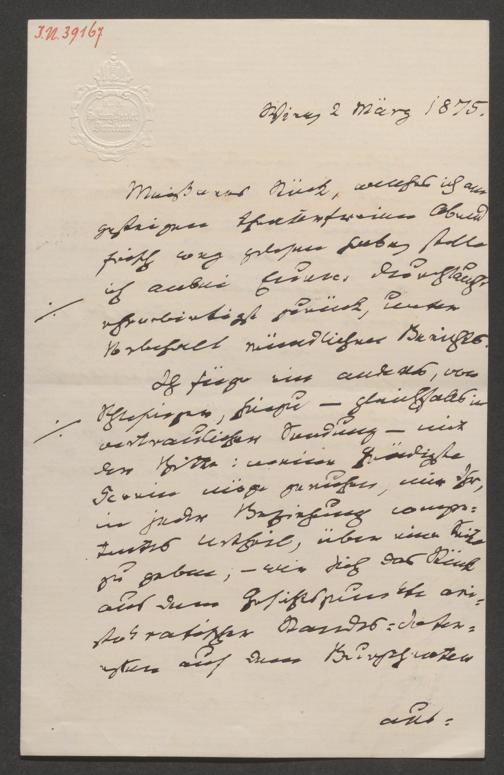 I.N. 39167
Wien 2 März 1875.
Meißners Stück, welches ich am
gestrigen theaterfreien Abend
frisch weg gelesen habe, stelle
ich anbei Euer Durchlaucht
ehrerbietigst zurück, unter
Vorbehalt mündlichen Berichts.
Ich füge ein anderes, von
Schlesinger, hinzu – gleichfalls in
vertraulicher Sendung – mit
der Bitte: meine gnädigste
Gönnerin möge geruhen, mir Ihr,
in jeder Beziehung compe-
tentes Urtheil, über eine
zu geben, – wie sich das Stück
aus dem Gesichtspunkte ari-
stokratischer Standes-Inter-
essen auf dem Burgtheater
aus-